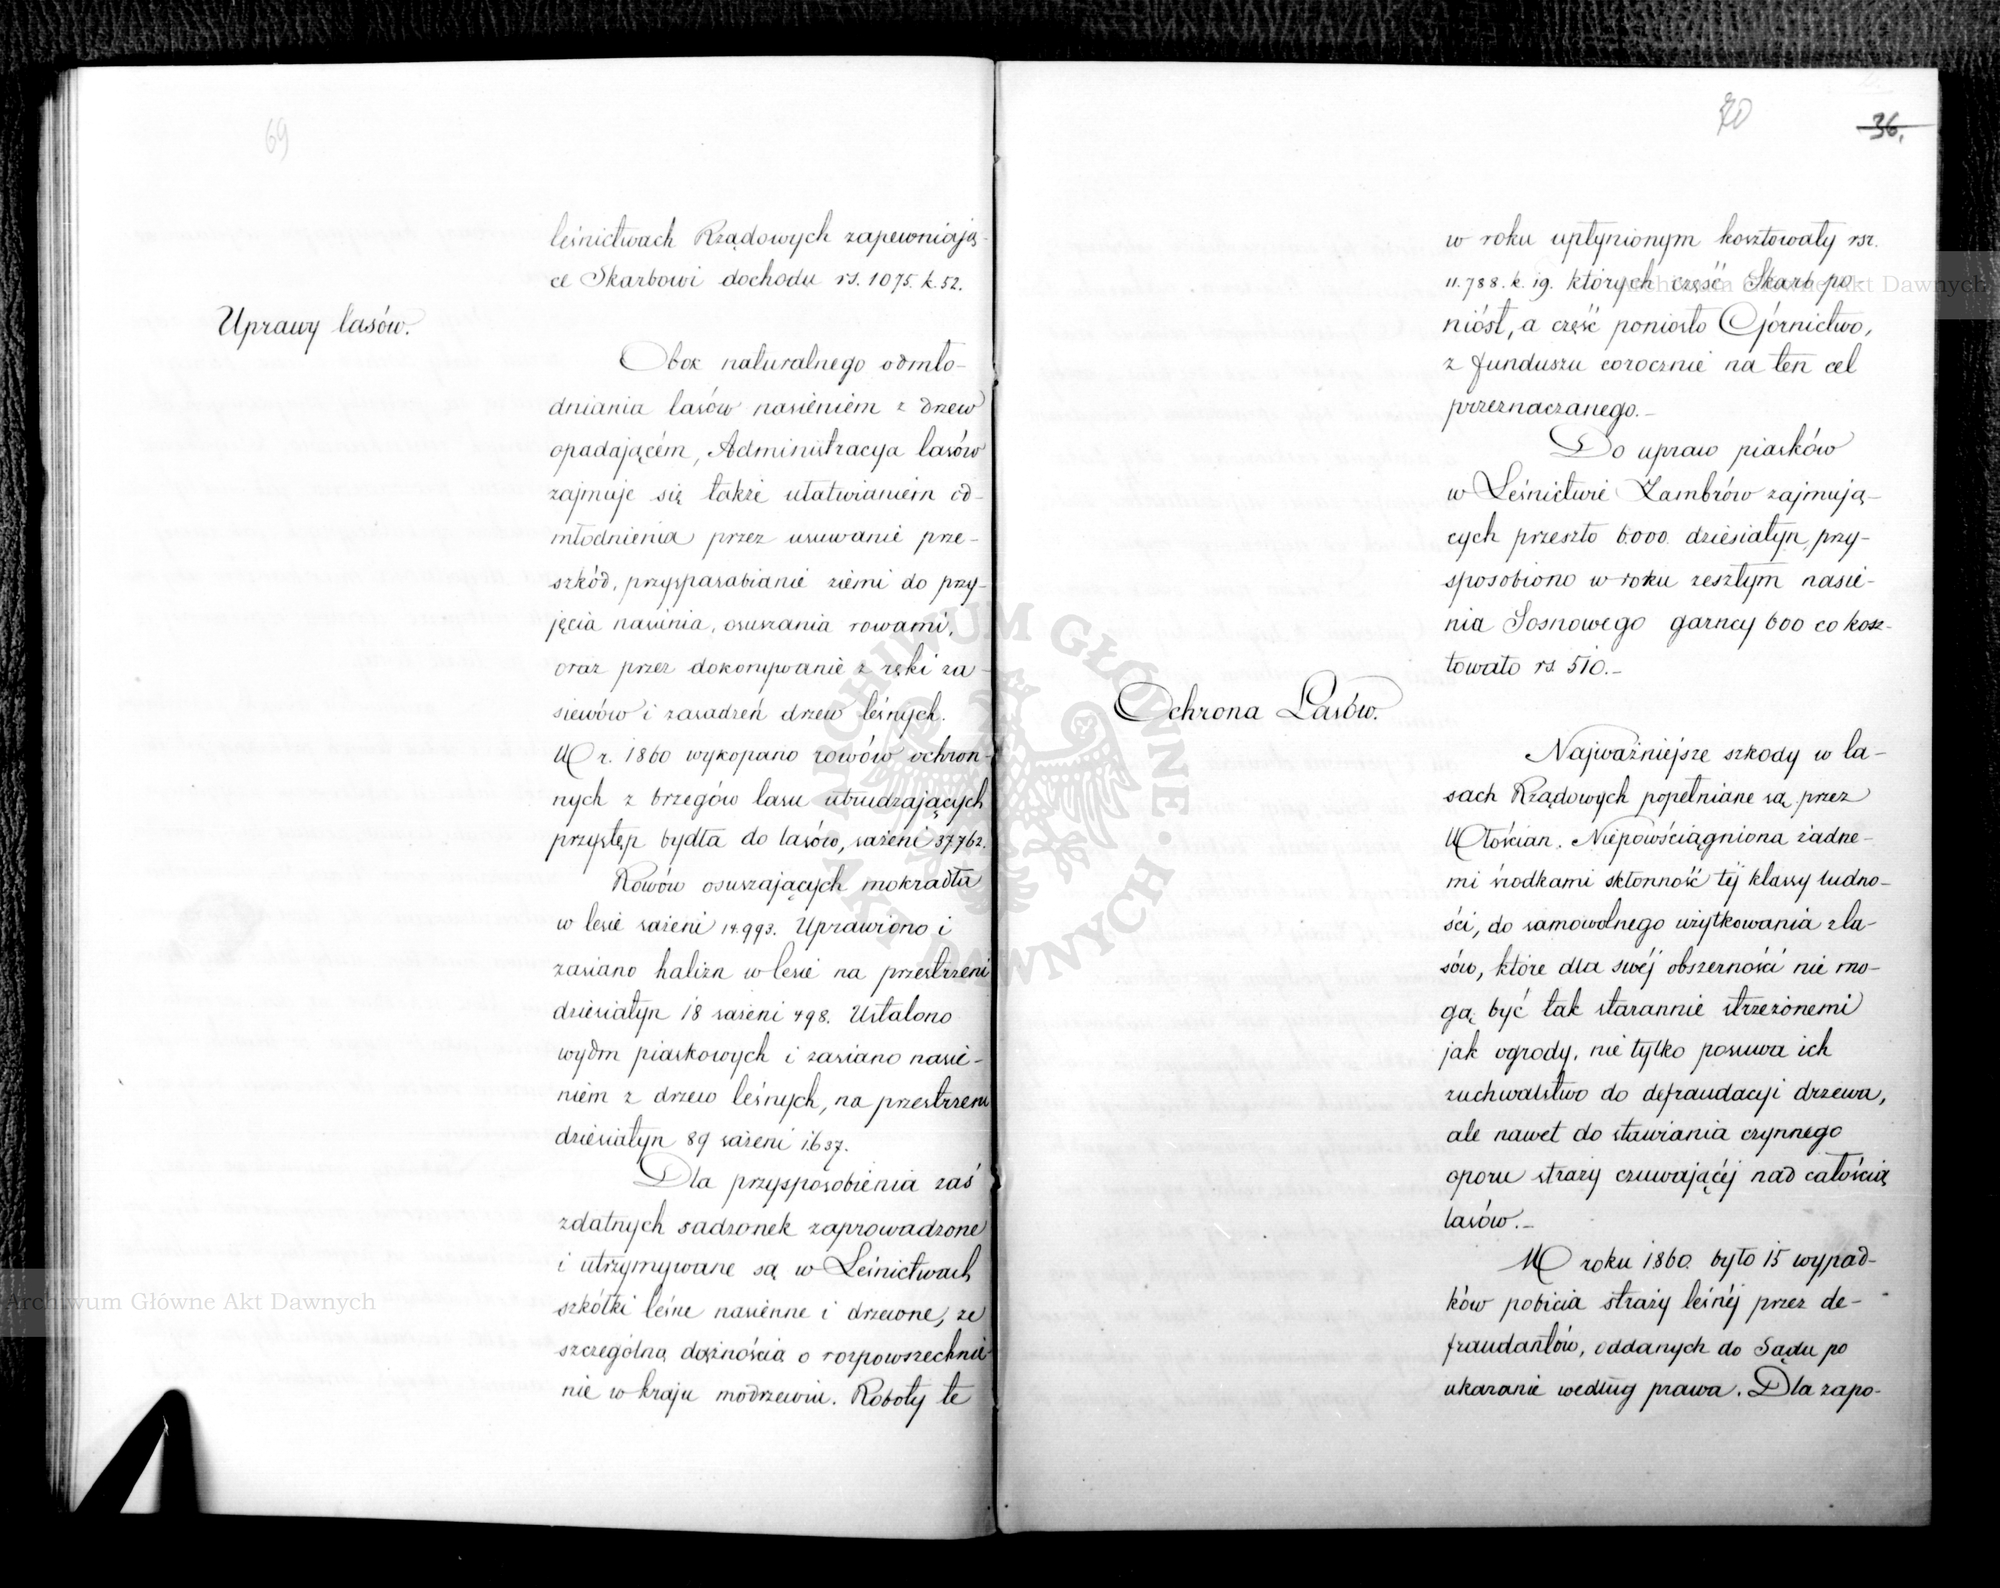 69
leśnictwach Rządowych zapewniają-
ce Skarbowi dochodu rs. 1075. k. 52.
Uprawy lasów.
Obok naturalnego odmło-
dniania lasów nasieniem z drzew
opadającém, Administracya lasów
zajmuje się także ułatwianiem od-
młodnienia przez usuwanie prze-
szkód, przysparabianie ziemi do przy-
jęcia nasienia, osuszania rowami,
oraz przez dokonywanie z ręki za-
siewów i zasadzeń drzew leśnych.
W r. 1860 wykopano rowów ochron-
nych z brzegów lasu utrudzających
przystęp bydła do lasów, sażeni 37762.
Rowów osuszających mokradła
w lesie sażeni 14.993. Uprawiono i
zasiano halizn w lesie na przestrzeni
dziesiatyn 18 sażeni 498. Ustalono
wydm piaskowych i zasiano nasie-
niem z drzew leśnych, na przestrzeni
dziesiatyn 89 sażeni 1.637.
Dla przysposobienia zaś
zdatnych sadzonek zaprowadzone
i utrzymywane są w Leśnictwach
szkółki leśne nasienne i drzewne, ze
szczególną dążnością o rozpowszechnie-
nie w kraju modrzewiu. Roboty te
70
36.
w roku upłynionym kosztowały rsr.
11.788. k. 19. których część Skarb po-
niósł, a część poniosło Górnictwo,
z funduszu corocznie na ten cel
przeznaczanego.-
Do upraw piasków
w Leśnictwie Zambrów zajmują-
cych przeszło 6.000. dziesiatyn, przy-
sposobiono w roku zeszłym nasie-
nia Sosnowego garncy 600 co kosz-
towało rs. 510.-
Ochrona Lasów.
Najważniejsze szkody w la-
sach Rządowych popełniane są przez
Włościan. Niepowściągniona żadne-
mi środkami skłonność téj klassy ludno-
ści, do samowolnego użytkowania z la-
sów, które dla swéj obszerności nie mo-
gą być tak starannie strzeżonemi
jak ogrody, nie tylko posuwa ich
zuchwalstwo do defraudacyi drzewa,
ale nawet do stawiania czynnego
oporu straży czuwającéj nad całością
lasów.-
W roku 1860. było 15 wypad-
ków pobicia straży leśnéj przez de-
fraudantów, oddanych do Sądu po
ukaranie według prawa. Dla zapo-
Archiwum Główne Akt Dawnych
Archiwum Główne Akt Dawnych
ARCHIWUM GŁÓWNE AKT DAWNYCH